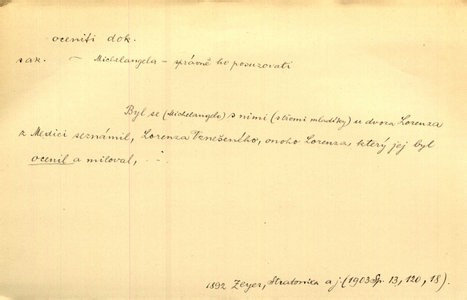 oceniti dok.
sak. — Michelangela – správně ho posuzovati
Byl se (Michelangelo) s nimi (s těmi mladíky) u dvora Lorenza
z Medici seznámil, Lorenza Vznešeného, onoho Lorenza, který jej byl
ocenil a miloval, . – .
1892 Zeyer, Stratonika a j. (1903 Sp. 13, 120, 18).